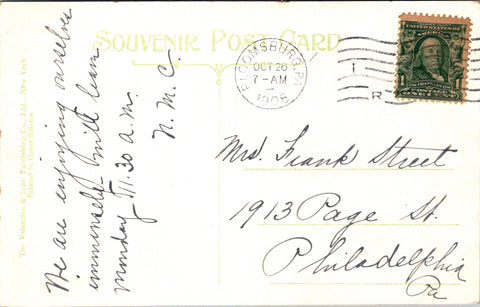 SOUVENIR POST CARD
We are enjoying ourselves
immensely will leave
Monday 11.30 a.m.
N. M. C
BLOOMSBURG, PA.
OCT 26
7-AM
1908
1
R
UNITED STATES OF AMERICA
Mrs. Frank Street
1913 Page St.
Philadelphia
Pa
The Valentine & Sons' Publishing Co., Ltd., New York
Printed in Great Britain